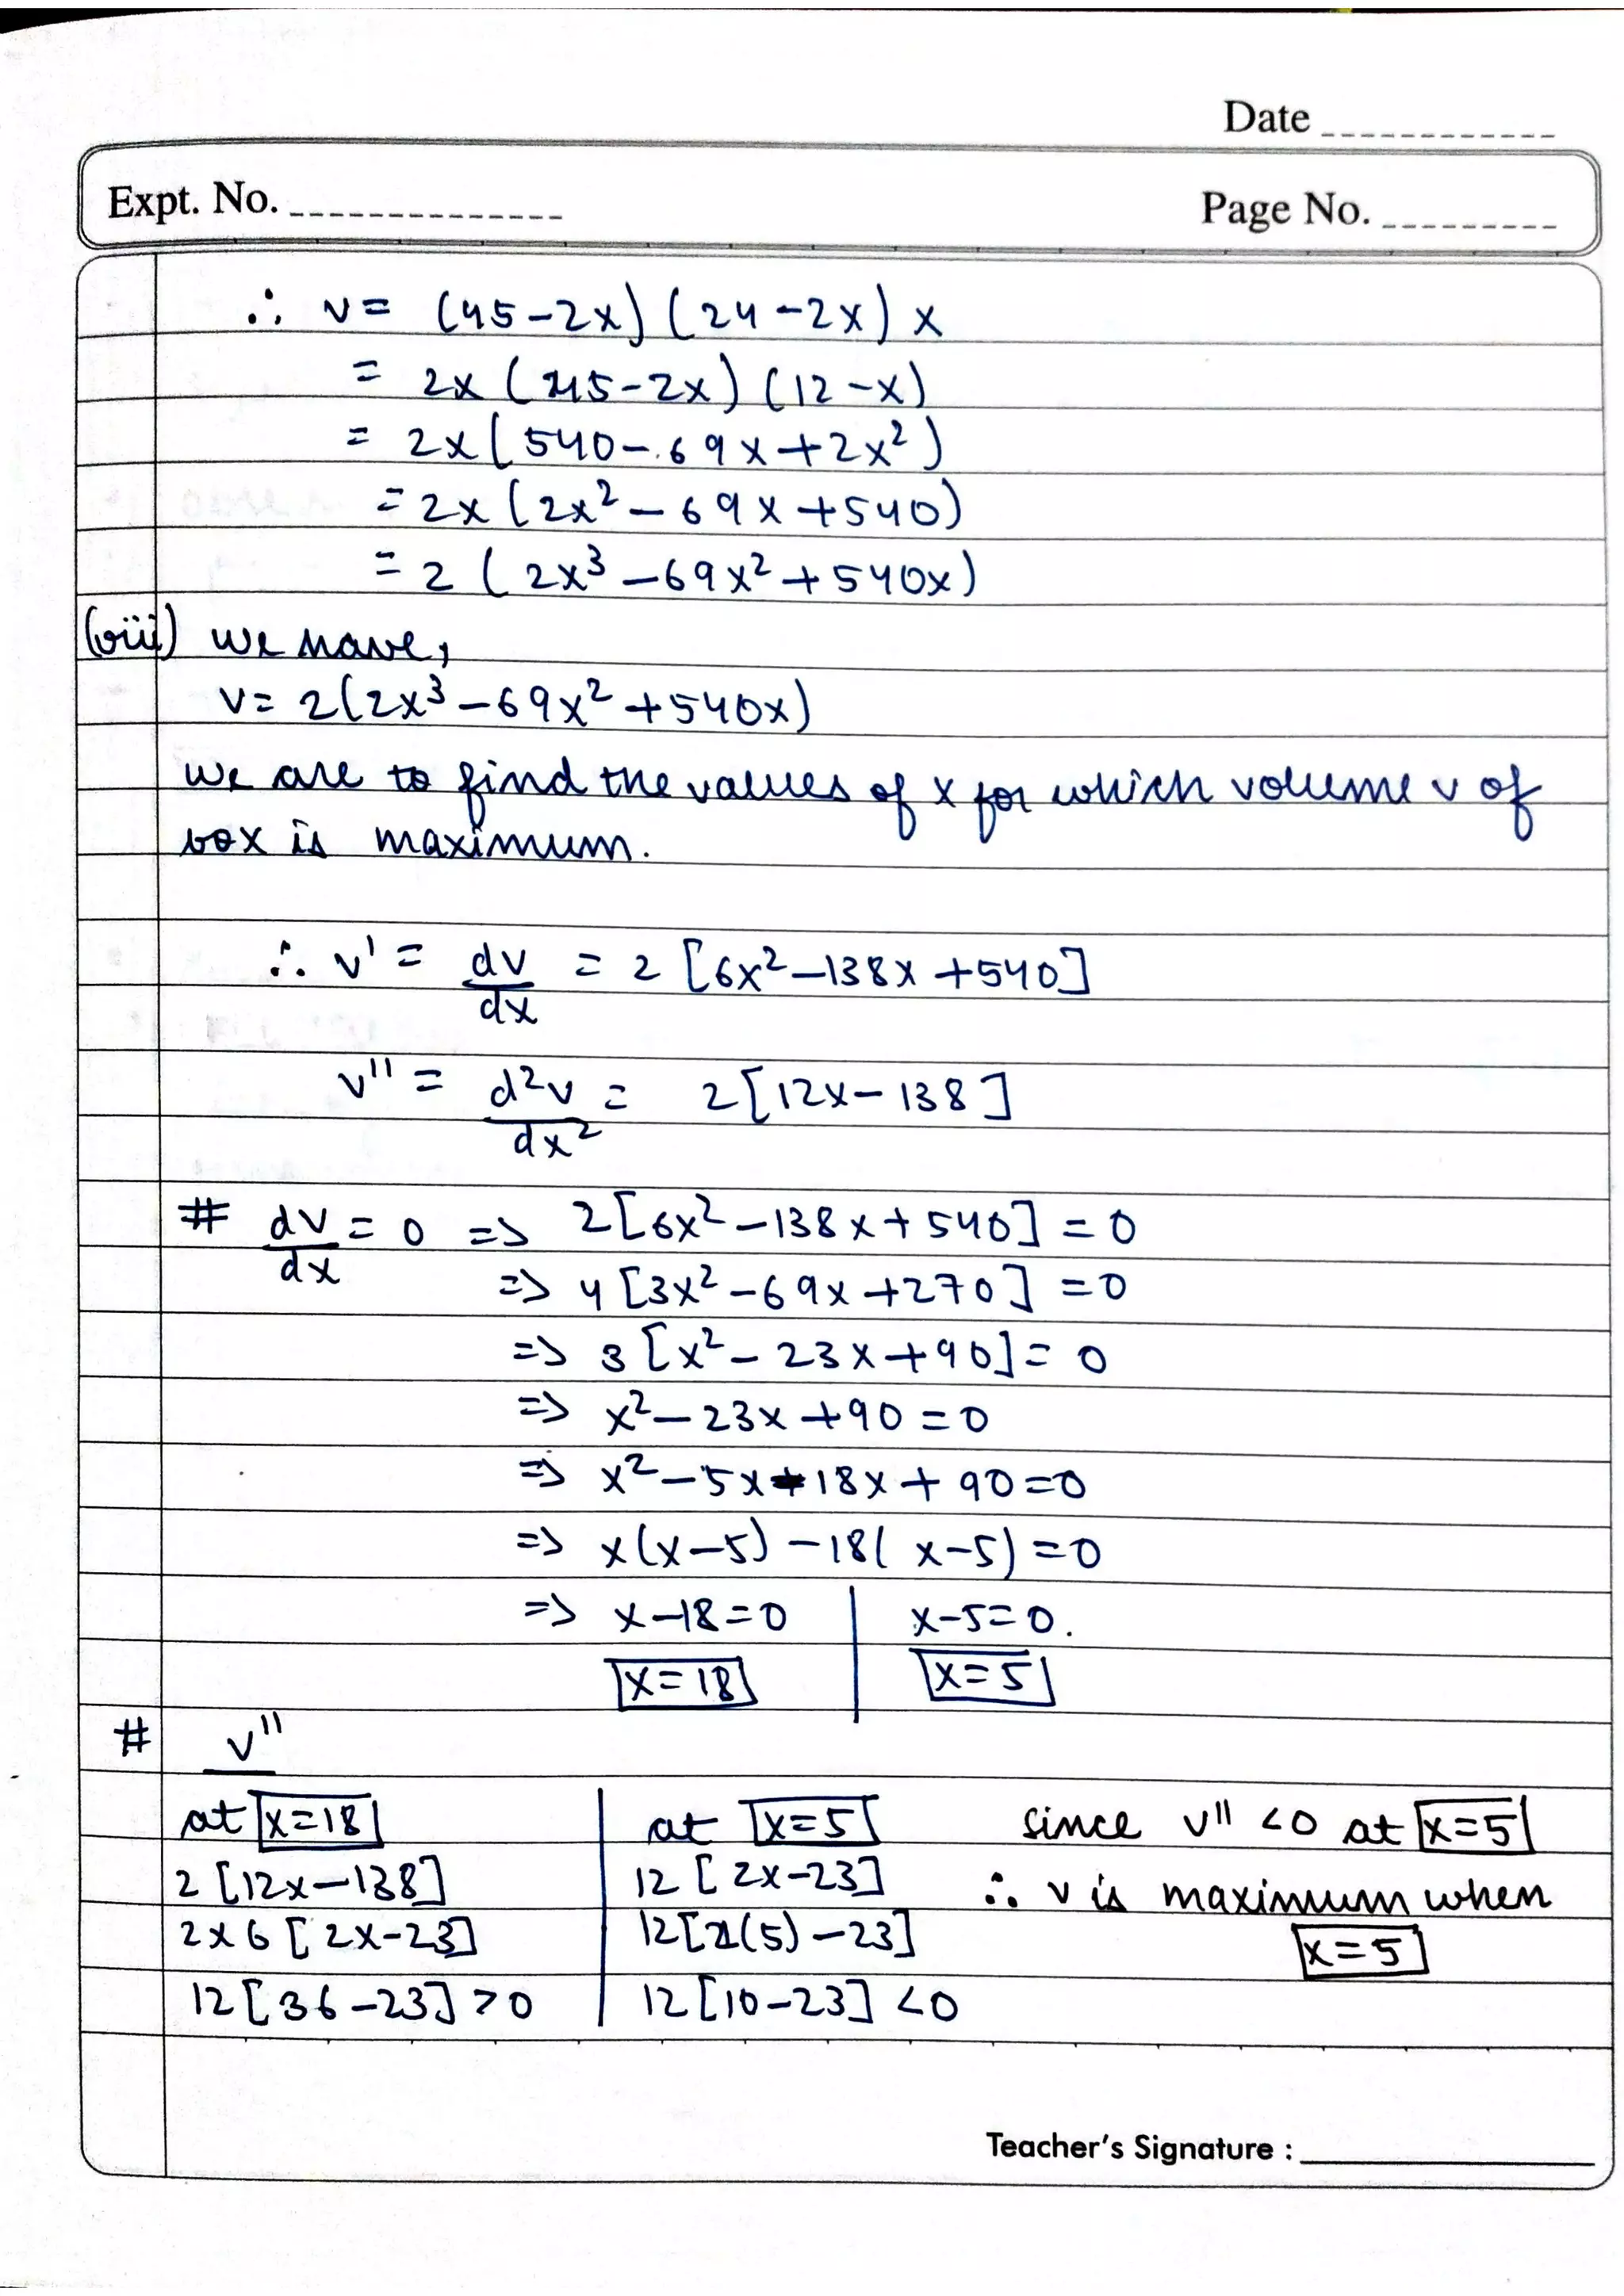 Date
Expt. No.
Page No.
∴ v = (45-2x) (24-2x) x
= 2x (45-2x) (12-x)
= 2x (540-69x+2x²)
= 2x (2x²-69x+540)
= 2 (2x³-69x²+540x)
(viii) we have,
v = 2(2x³-69x²+540x)
we are to find the values of x for which volume v of
box is maximum.
∴ v' = dv/dx = 2 [6x²-138x+540]
v'' = d²v/dx² = 2[12x-138]
# dv/dx = 0 => 2[6x²-138x+540] = 0
=> 4 [3x²-69x+270] = 0
=> 3 [x²-23x+90] = 0
=> x²-23x+90 = 0
=> x²-5x-18x+90=0
=> x(x-5)-18(x-5)=0
=> x-18=0 | x-5=0.
x=18 | x=5
# v''
at x=18 | at x=5 since v'' <0 at x=5
2 [12x-138] | 12 [2x-23] ∴ v is maximum when
2x6 [2x-23] | 12[2(5)-23] x=5
12[36-23] >0 | 12[10-23] <0
Teacher's Signature :